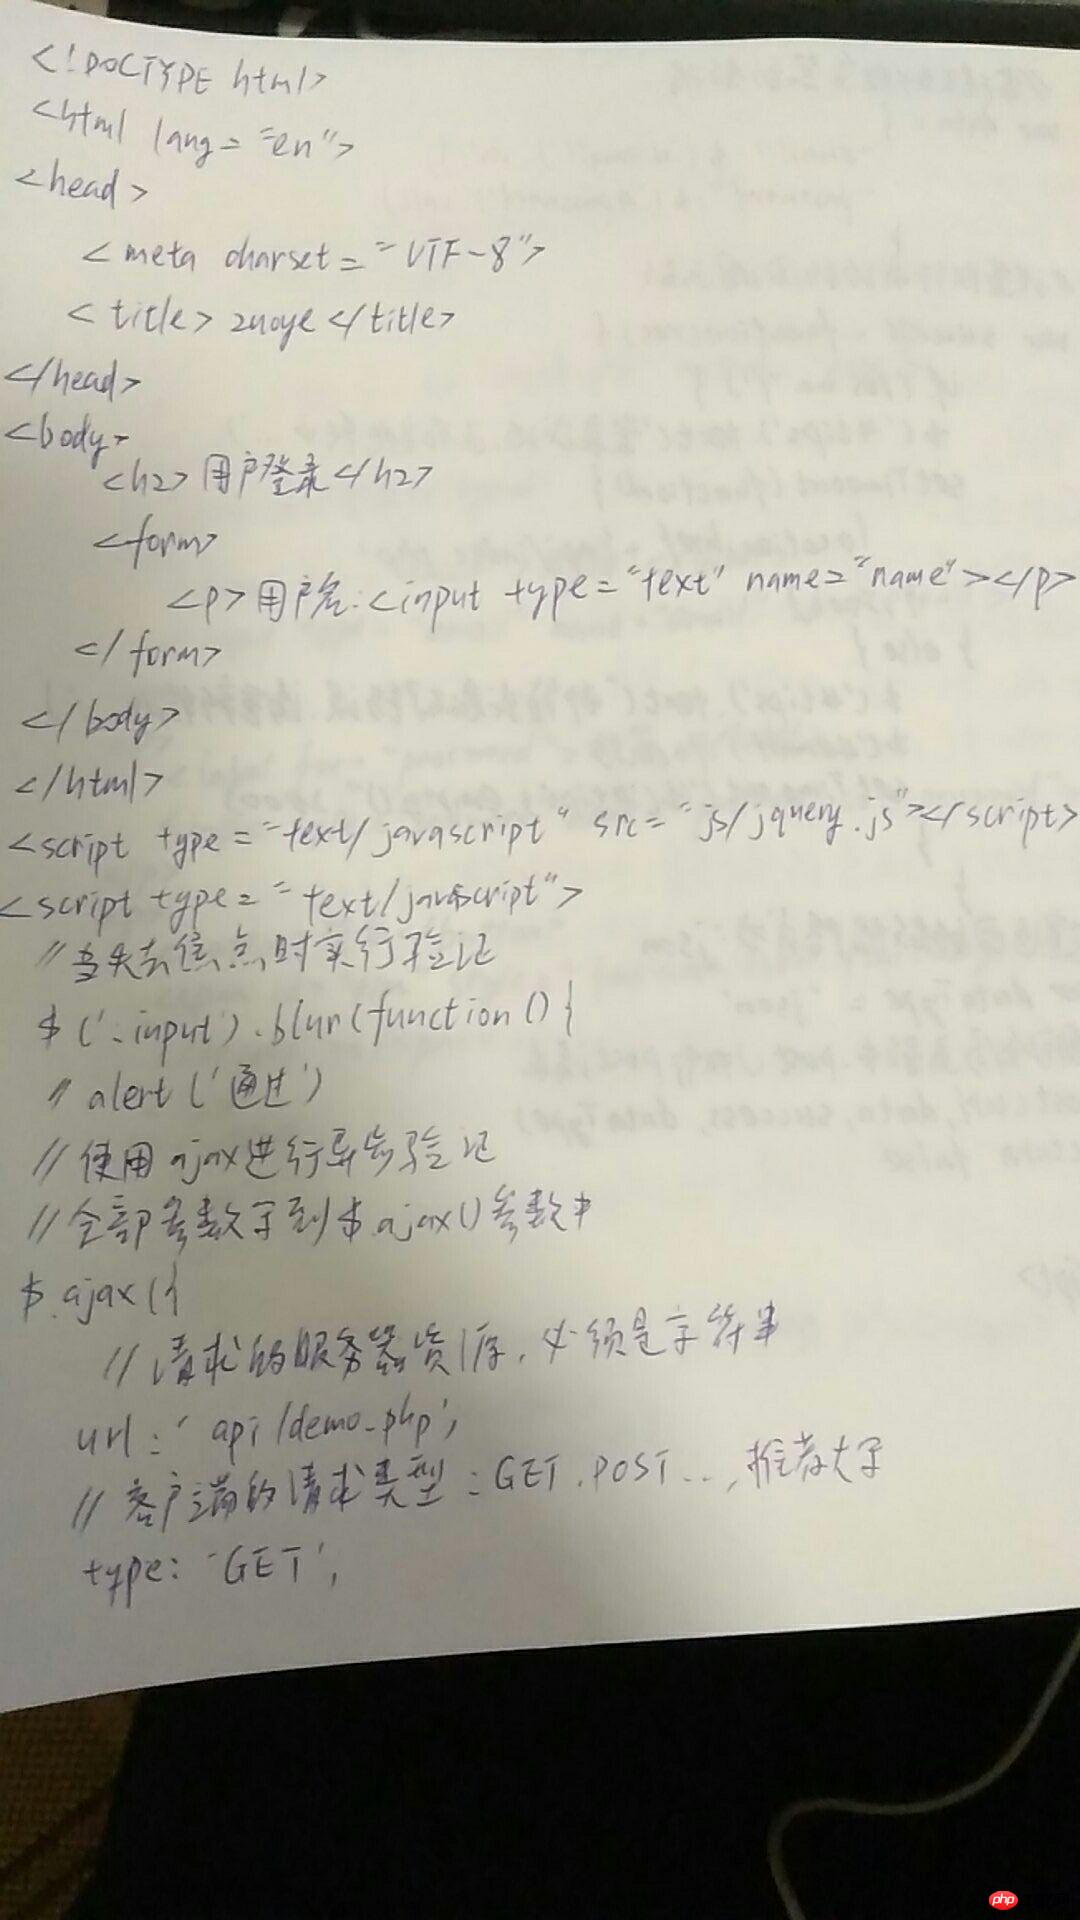 <!DOCTYPE html>
<html lang="en">
<head>
<meta charset="UTF-8">
<title>zuoye</title>
</head>
<body>
<h2>用户登录</h2>
<form>
<p>用户名:<input type="text" name="name"></p>
</form>
</body>
</html>
<script type="text/javascript" src="js/jquery.js"></script>
<script type="text/javascript">
//当失去焦点时实行验证
$(':input').blur(function(){
//alert('通过')
//使用ajax进行异步验证
//全部参数写到$.ajax()参数中
$.ajax({
//请求的服务器资源,必须是字符串
url:'api/demo.php',
//客户端的请求类型:GET.POST..,推荐大写
type:'GET',
php